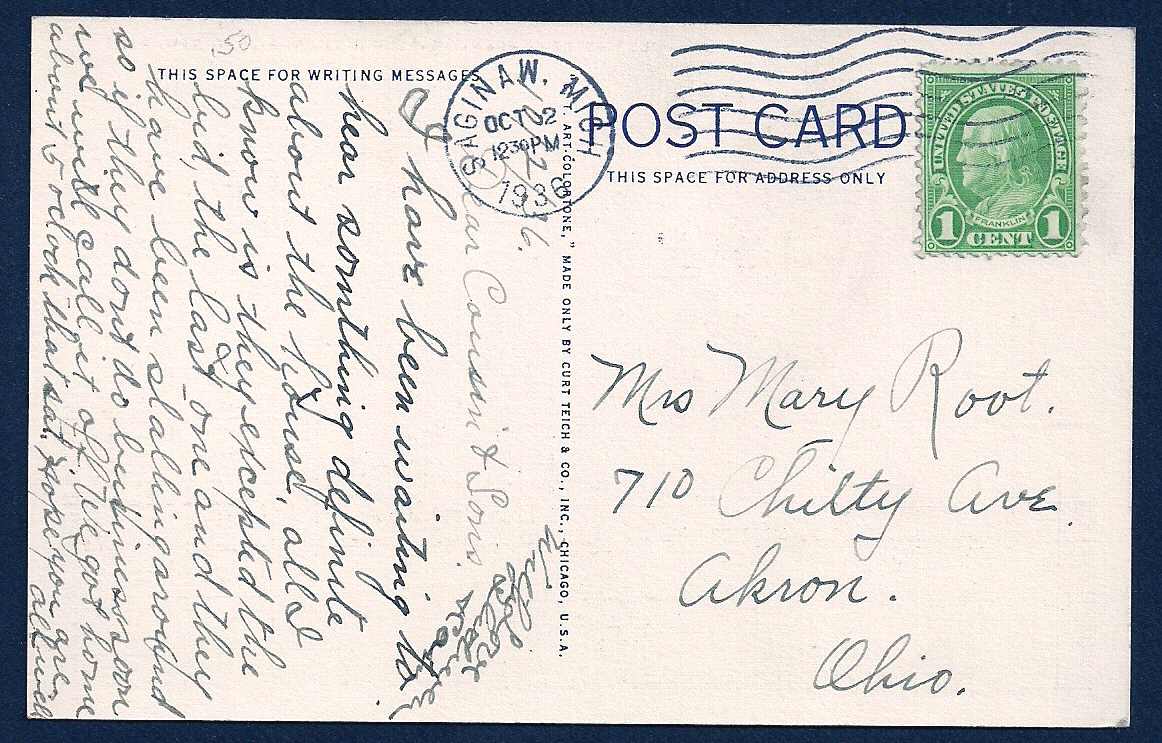 .50
THIS SPACE FOR WRITING MESSAGES
SAGINAW, MICH
OCT 2
1230 PM
1936
POST CARD
THIS SPACE FOR ADDRESS ONLY
UNITED STATES POSTAGE
FRANKLIN
1 CENT 1
ART-COLORTONE," MADE ONLY BY CURT TEICH & CO., INC., CHICAGO, U.S.A.
Dear Cousin & Sons.
I have been waiting to
hear somthing definite
about the house, all I
know is they excepted the
bid, the last one and they
have been stalling around
so if they dont do business soon
we will call it off. We got home
about 5 oclock that sat. Hope you are
all well
With
Love
Mrs Mary Root.
710 Chilty Ave.
Akron.
Ohio.